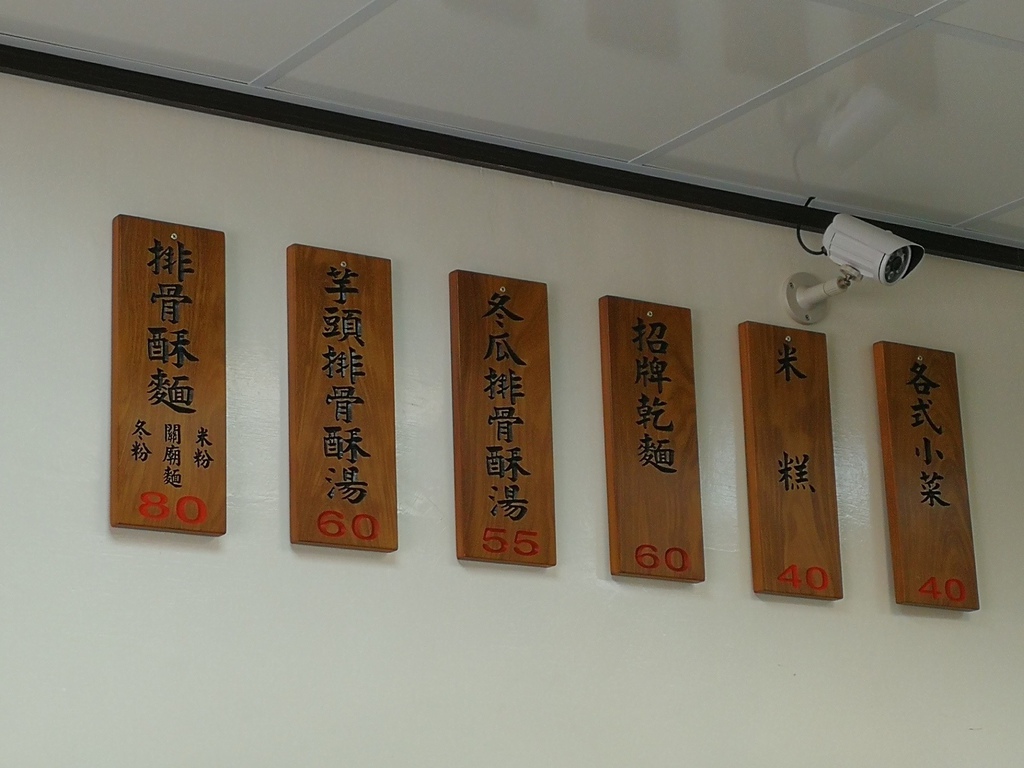 排骨酥麵
米粉
關廟麵
冬粉
80
芋頭排骨酥湯
60
冬瓜排骨酥湯
55
招牌乾麵
60
米糕
40
各式小菜
40